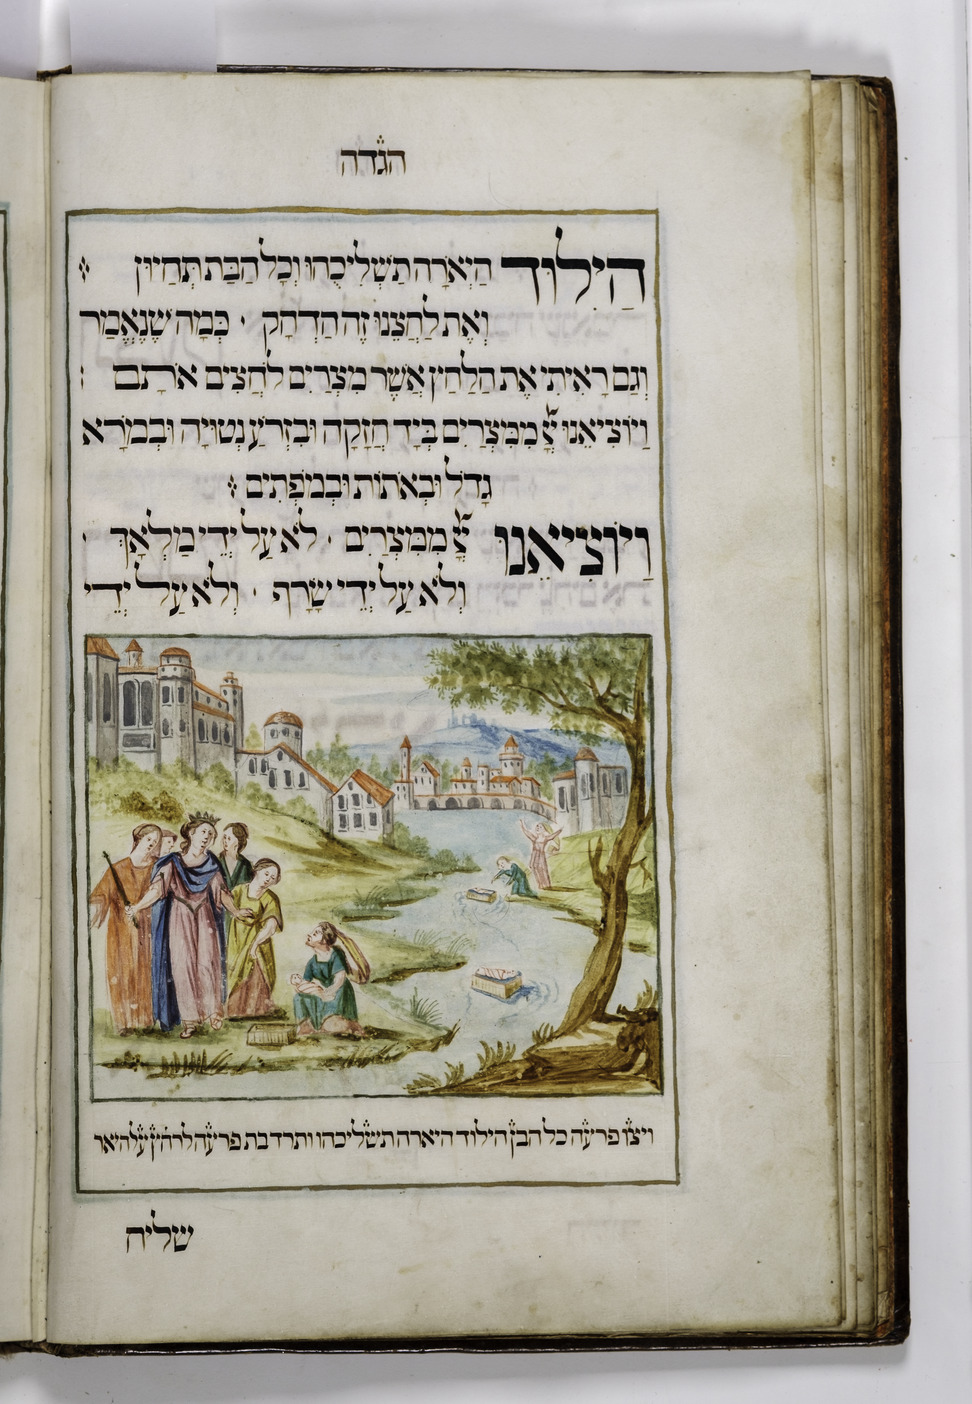 הגדה
הַיִלוֹד הַיְאֹרָה תַשְׁלִיכֻהוּ וְכָל הַבַּת תְּחַיּוּן
וְאֶת לַחֲצֵנוּ זֶה הַדְחָק · כְּמָה שֶׁנֶאֱמַר
וְגַם רָאִיתִי אֶת הַלַחַץ אֲשֶׁר מִצְרַיִם לֹחֲצִים אֹתָם :
וַיוֹצִיאֵנוּ מִמִצְרַיִם בְּיָד חֲזָקָה וּבִזְרֹעַ נְטוּיָה וּבְמֹרָא
גָדֹל וּבְאֹתוֹת וּבְמֹפְתִים
וַיוֹצִיאֵנוּ מִמִצְרַיִם · לֹא עַל יְדֵי מַלְאָךְ ·
וְלֹא עַל יְדֵי שָׂרָף · וְלֹא עַל יְדֵי
ויצו פרעה כל הבן הילוד היארה תשליכהו ותרד בת פרעה לרחץ על היאר
שליח